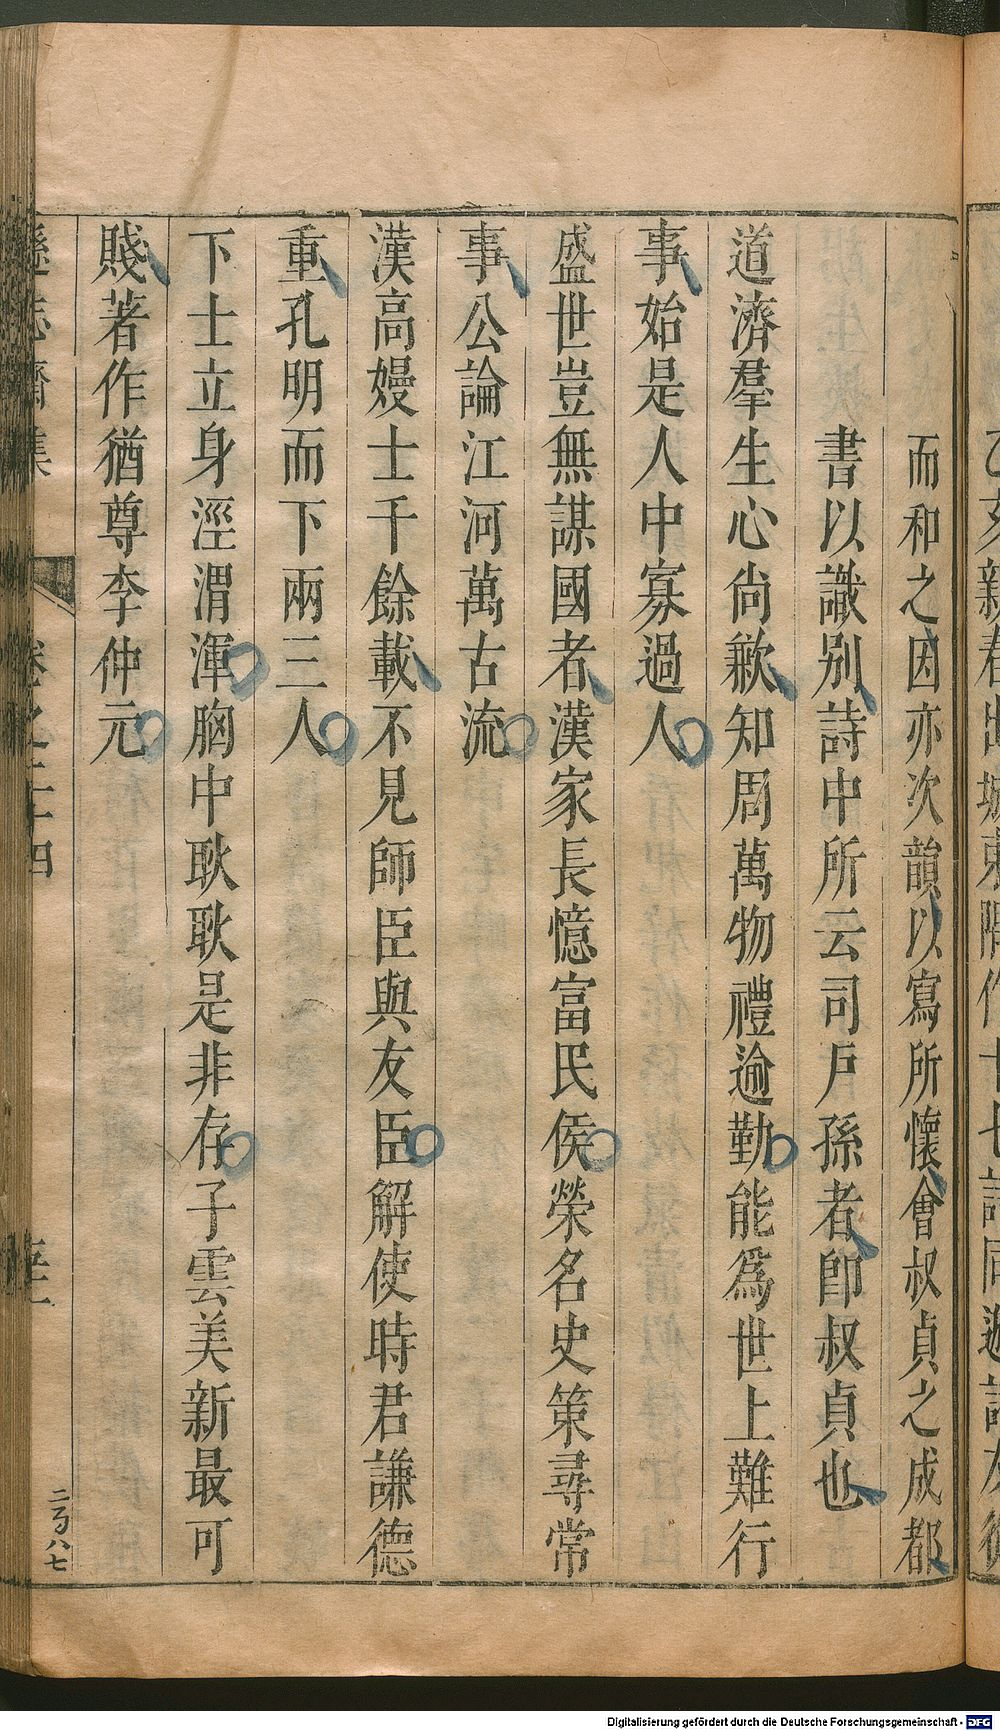 而和之因亦次韻以寫所懷會叔貞之成都
書以識别詩中所云司戶孫者卽叔貞也
道濟羣生心尙歉知周萬物禮逾勤能爲世上難行
事始是人中寡過人
盛世豈無謀國者漢家長憶富民侯榮名史策尋常
事公論江河萬古流
漢高嫚士千餘載不見師臣與友臣解使時君謙德
重孔明而下兩三人
下士立身涇渭渾胸中耿耿是非存子雲美新最可
賤著作猶尊李仲元
遜志齋集 卷之二十四
Digitalisierung gefördert durch die Deutsche Forschungsgemeinschaft - DFG